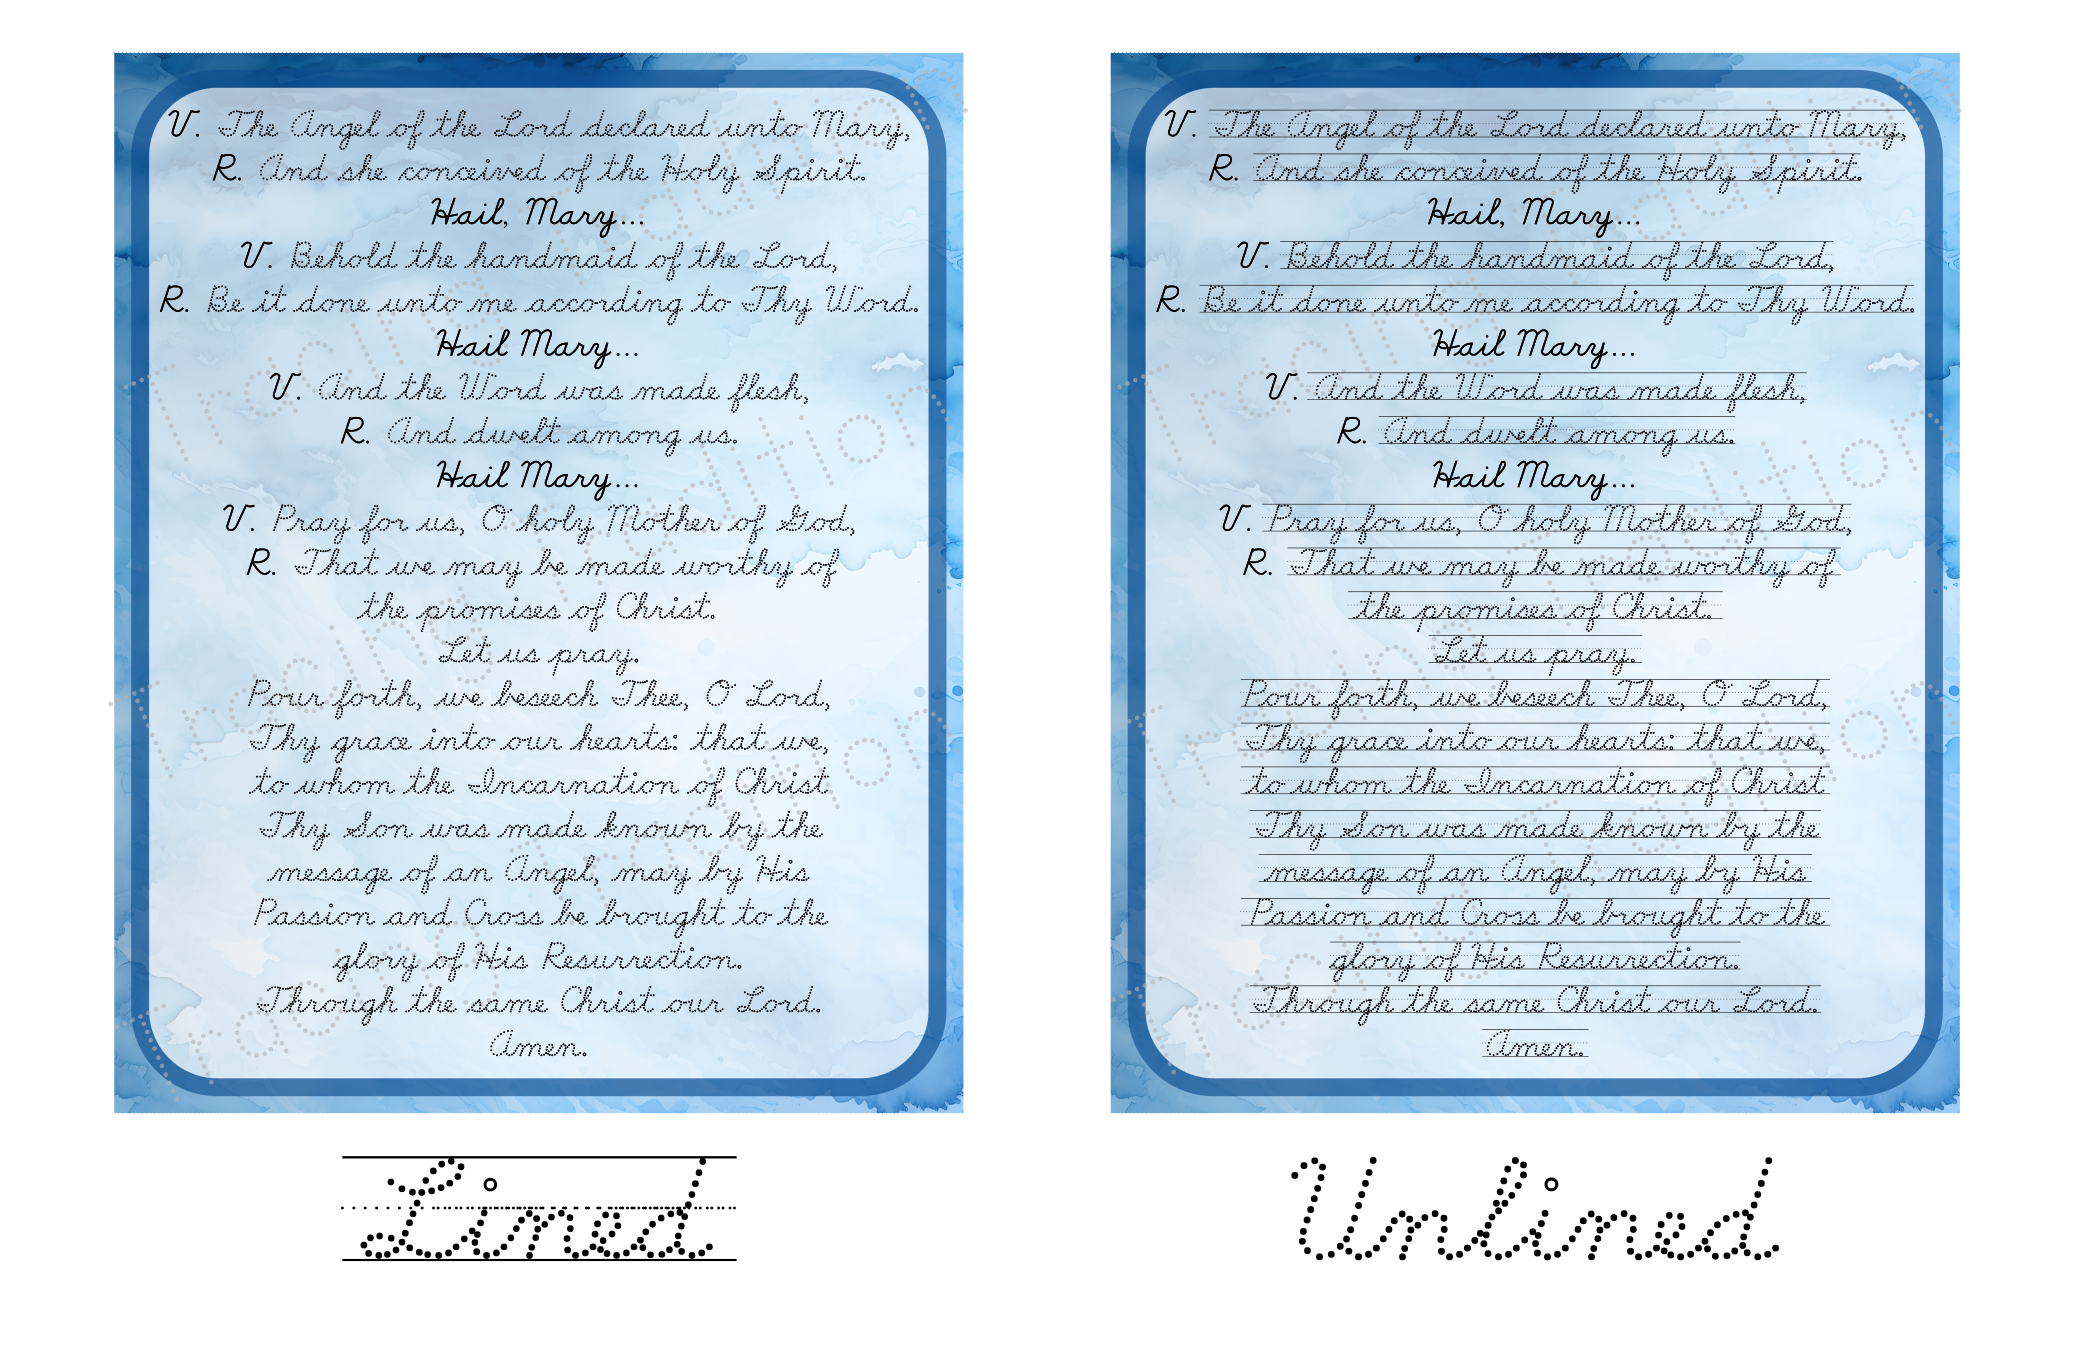 V. The Angel of the Lord declared unto Mary,
R. And she conceived of the Holy Spirit.
Hail, Mary...
V. Behold the handmaid of the Lord,
R. Be it done unto me according to Thy Word.
Hail Mary...
V. And the Word was made flesh,
R. And dwelt among us.
Hail Mary...
V. Pray for us, O holy Mother of God,
R. That we may be made worthy of
the promises of Christ.
Let us pray.
Pour forth, we beseech Thee, O Lord,
Thy grace into our hearts: that we,
to whom the Incarnation of Christ
Thy Son was made known by the
message of an Angel, may by His
Passion and Cross be brought to the
glory of His Resurrection.
Through the same Christ our Lord.
Amen.
Lined
V. The Angel of the Lord declared unto Mary,
R. And she conceived of the Holy Spirit.
Hail, Mary...
V. Behold the handmaid of the Lord,
R. Be it done unto me according to Thy Word.
Hail Mary...
V. And the Word was made flesh,
R. And dwelt among us.
Hail Mary...
V. Pray for us, O holy Mother of God,
R. That we may be made worthy of
the promises of Christ.
Let us pray.
Pour forth, we beseech Thee, O Lord,
Thy grace into our hearts: that we,
to whom the Incarnation of Christ
Thy Son was made known by the
message of an Angel, may by His
Passion and Cross be brought to the
glory of His Resurrection.
Through the same Christ our Lord.
Amen.
Unlined